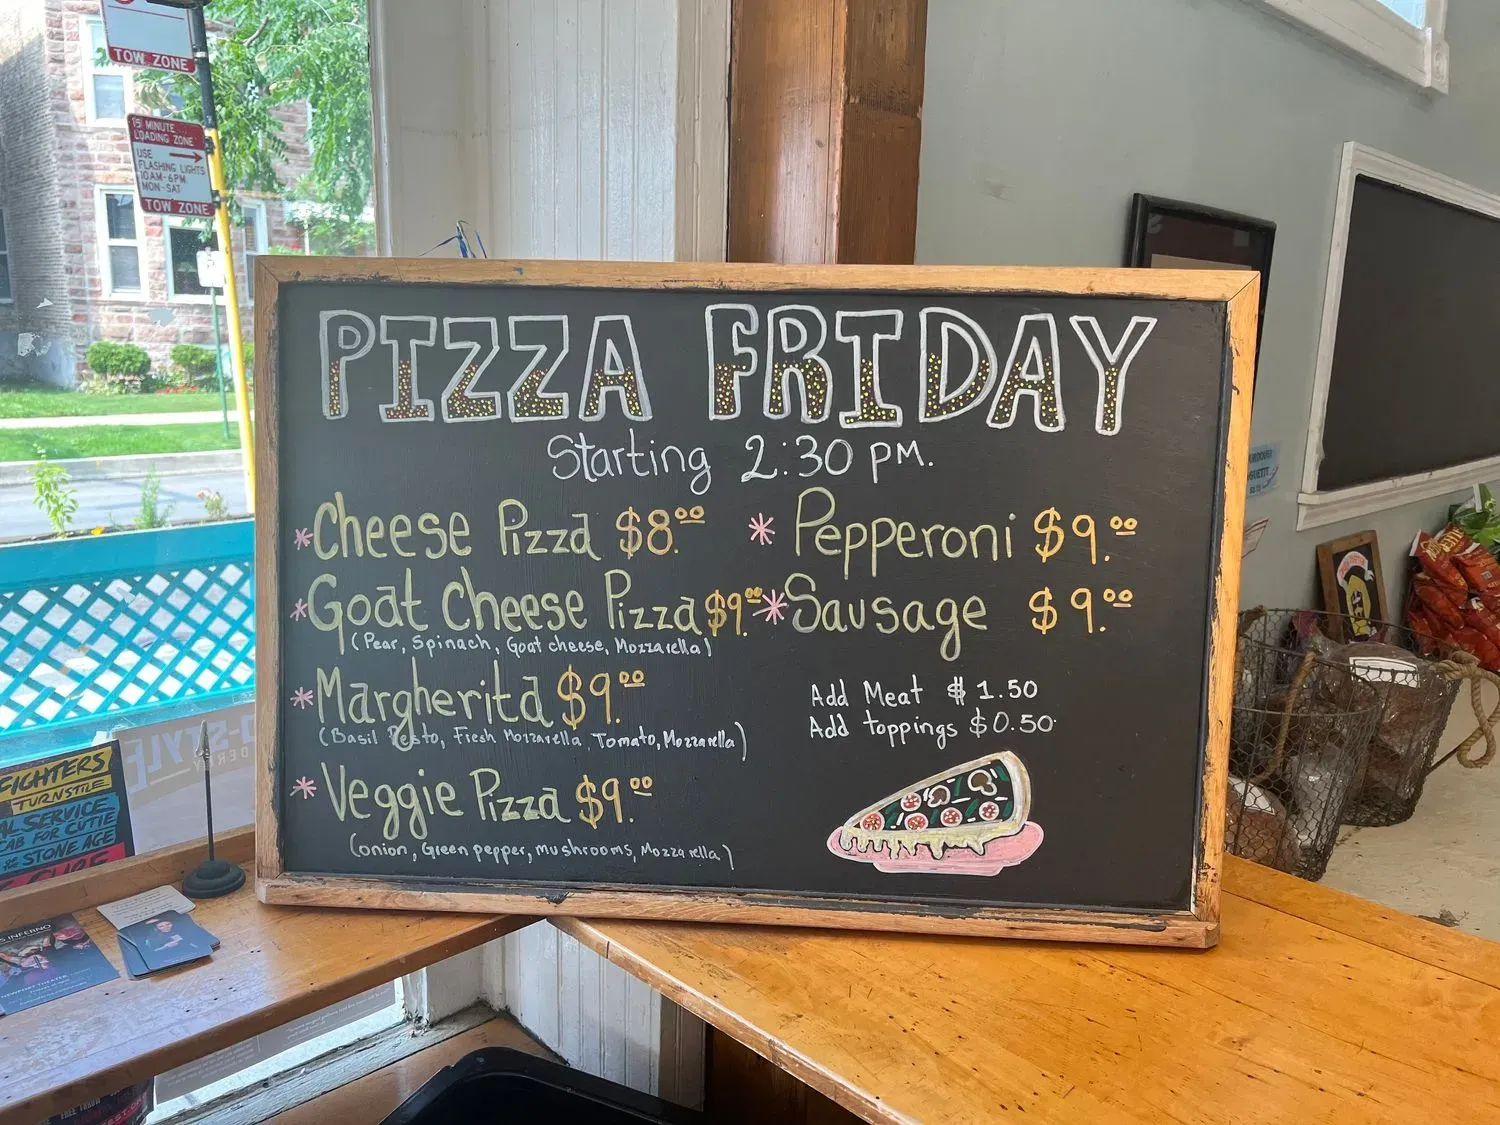 TOW ZONE
15 MINUTE
LOADING ZONE
USE
FLASHING LIGHTS
10AM-6PM
MON-SAT
TOW ZONE
PIZZA FRIDAY
Starting 2:30 PM.
*Cheese Pizza $8.00
*Goat Cheese Pizza $9.00
(Pear, Spinach, Goat cheese, Mozzarella)
*Margherita $9.00
(Basil Pesto, Fresh Mozzarella, Tomato, Mozzarella)
*Veggie Pizza $9.00
(onion, Green pepper, mushrooms, Mozzarella)
*Pepperoni $9.00
*Sausage $9.00
Add Meat $1.50
Add toppings $0.50
FIGHTERS
TURNSTILE
AL SERVICE
CAB FOR CUTIE
STONE AGE
INFERNO